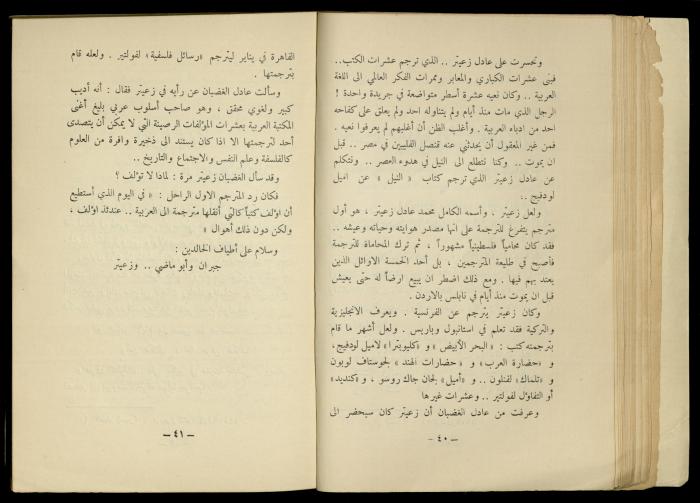 وتحسرت على عادل زعيتر .. الذي ترجم عشرات الكتب..
فبنى عشرات الكباري والمعابر وممرات الفكر العالمي الى اللغة
العربية .. وكان نعيه عشرة أسطر متواضعة في جريدة واحدة !
الرجل الذي مات منذ أيام ولم يتناوله احد ولم يعلق على كفاحه
احد من ادباء العربية . وأغلب الظن أن أغلبهم لم يعرفوا نعيه .
فمن غير المعقول أن يحدثني عنه قنصل الفلبين في مصر .. قبل
ان يموت .. وكنا نتطلع الى النيل في هدوء العصر .. ونتكلم
عن عادل زعيتر الذي ترجم كتاب « النيل » عن اميل
لودفيج ..
ولعل زعيتر ، وأسمه الكامل محمد عادل زعيتر ، هو أول
مترجم يتفرغ للترجمة على انها مصدر هوايته وحياته وعيشه ..
فقد كان محامياً فلسطينياً مشهوراً ، ثم ترك المحاماة للترجمة
فأصبح في طليعة المترجمين ، بل أحد الخمسة الاوائل الذين
يعتد بهم فيها . ومع ذلك اضطر ان يبيع ارضاً له حتى يعيش
قبل ان يموت منذ أيام في نابلس بالاردن .
وكان زعيتر يترجم عن الفرنسية . ويعرف الانجليزية
والتركية فقد تعلم في استانبول وباريس . ولعل أشهر ما قام
بترجمته كتب : « البحر الأبيض » و « كليوبترا » لاميل لودفيج،
و « حضارة العرب » و « حضارات الهند » لجوستاف لوبون
و « تلماك » لفنلون .. و « أميل » لجان جاك روسو ، و « كنديد »
أو التفاؤل لفولتير .. وعشرات غيرها
وعرفت من عادل الغضبان أن زعيتر كان سيحضر الى
— ٤٠ —
القاهرة في يناير ليترجم « رسائل فلسفية » لفولتير . ولعله قام
بترجمتها .
وسألت عادل الغضبان عن رأيه في زعيتر فقال : أنه أديب
كبير ولغوي محقق ، وهو صاحب أسلوب عربي بليغ أغنى
المكتبة العربية بعشرات المؤلفات الرصينة التي لا يمكن أن يتصدى
أحد لترجمتها الا اذا كان يستند الى ذخيرة وافرة من العلوم
كالفلسفة وعلم النفس والاجتماع والتاريخ ..
وقد سأل الغضبان زعيتر مرة : لماذا لا تؤلف ؟
فكان رد المترجم الاول الراحل : « في اليوم الذي أستطيع
أن اؤلف كتباً كالتي أنقلها مترجمة الى العربية .. عندئذ اؤلف ،
ولكن دون ذلك أهوال »
وسلام على أطياف الخالدين :
جبران وأبو ماضي .. وزعيتر
— ٤١ —